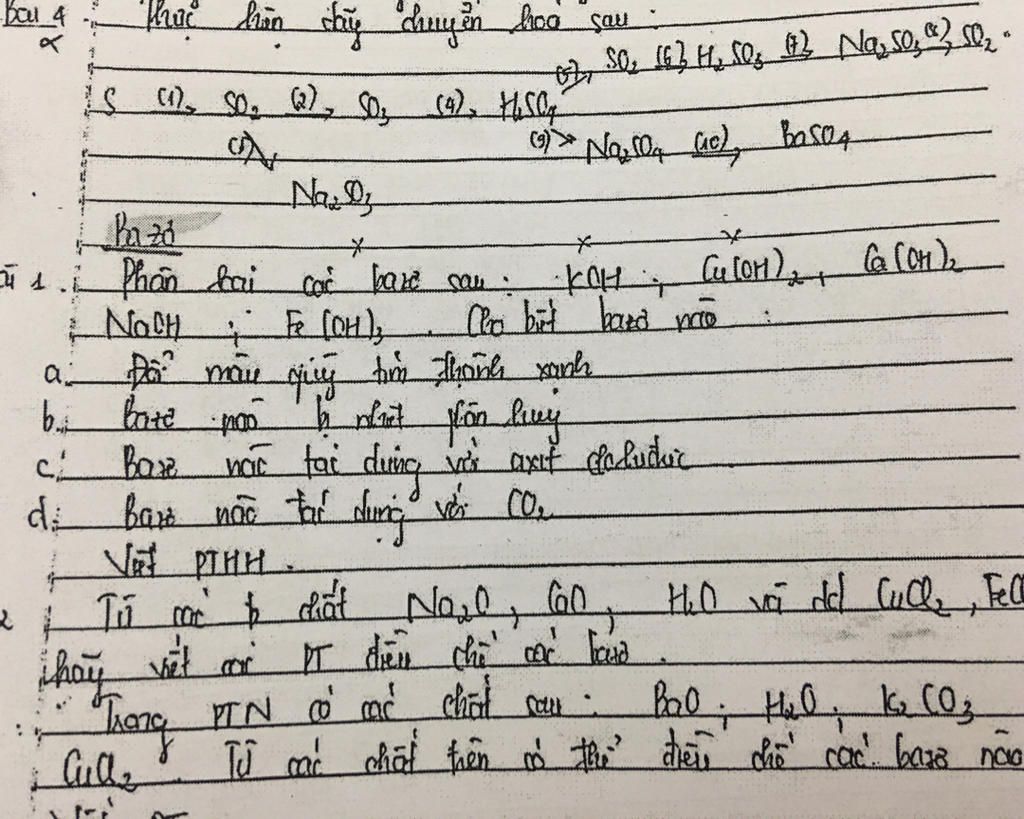 Bài 4 Thực hiện dãy chuyển hoá sau :
(5) SO₂ (6) H₂SO₃ (7) Na₂SO₃ (8) SO₂.
S (1) SO₂ (2) SO₃ (4) H₂SO₄
(3) (9) Na₂SO₄ (10) BaSO₄
Na₂SO₃
Bazơ
1. Phân loại các bazơ sau : KOH ; Cu(OH)₂, Ca(OH)₂
NaOH ; Fe(OH)₃. Cho biết bazơ nào :
a. Đổi màu quỳ tím thành xanh
b. bazơ nào b nhiệt phân huỷ
c. Bazơ nào tác dụng với axit
d. Bazơ nào tác dụng với CO₂
Viết PTHH.
2 Từ các chất Na₂O, CaO, H₂O và dd CuCl₂, FeCl
hãy viết các PT điều chế các bazơ.
Trong PTN có các chất sau : BaO ; H₂O ; K₂CO₃
CuCl₂. Từ các chất trên có thể điều chế các bazơ nào